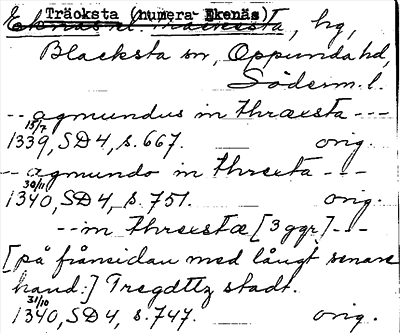 Träoksta (numera Ekenäs)
hg,
Blacksta sn, Oppunda hd,
Söderm. l.
-- agmundus in Thræxsta ---
15/7
1339, SD 4, s. 667. __ orig.
-- agmundo in Threxta ---
30/11
1340, SD 4, s. 751. __ orig.
-- in Threxstæ [3 ggr] ---
[på frånsidan med långt senare
hand:] Tregdttz stadt.
31/10
1340, SD 4, s. 747. orig.